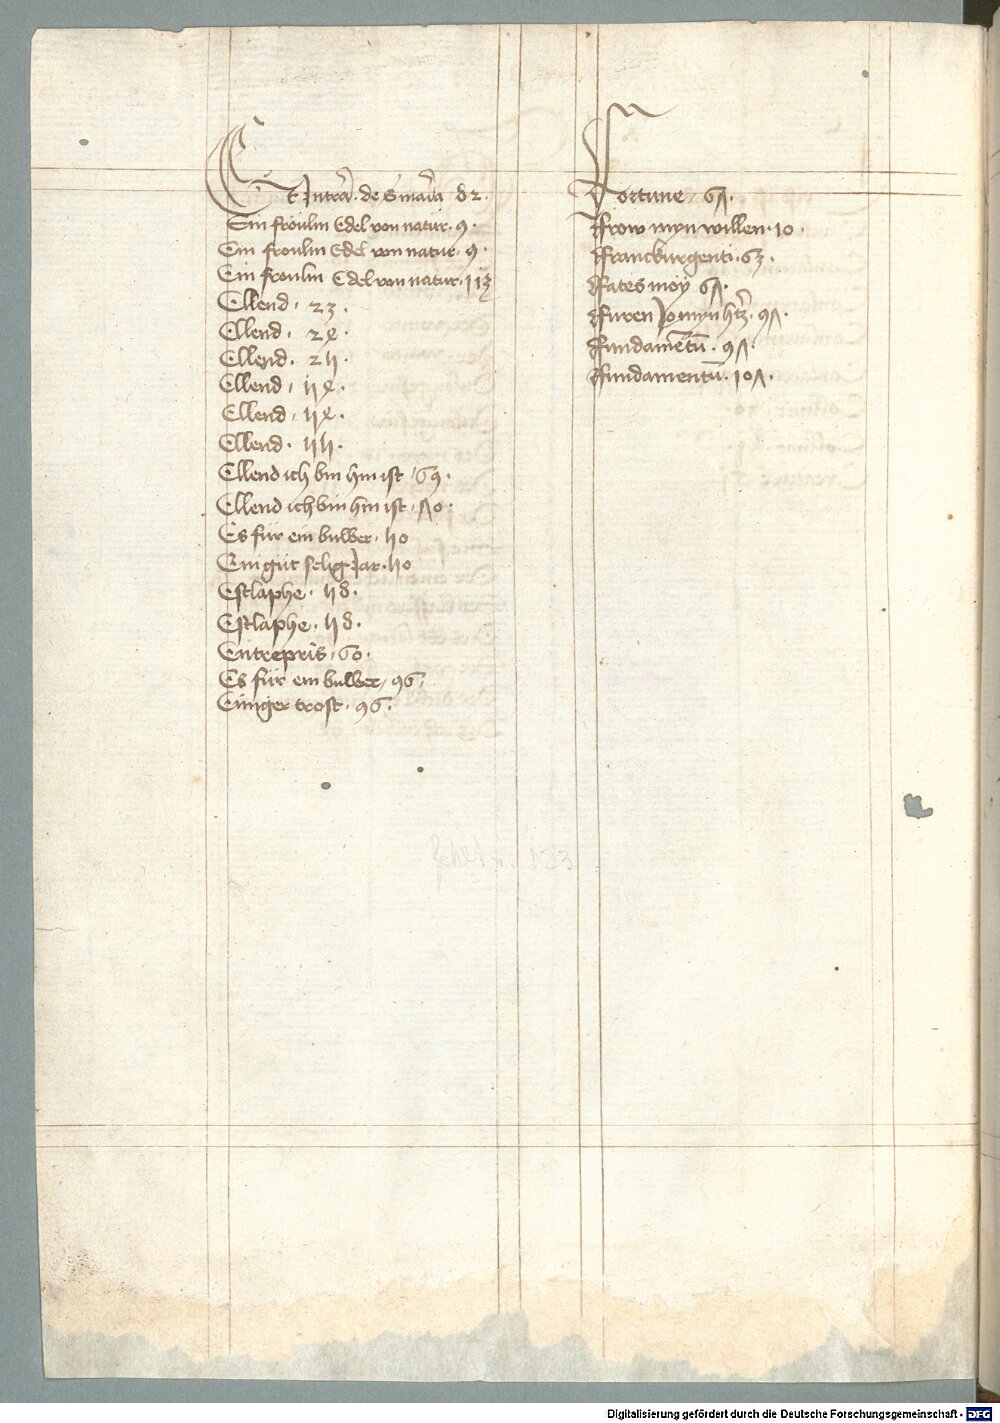 Et Intrā. de S maria 82.
Ein froulin Edel von natur. 9.
Ein froulin Edel von natur. 9.
Ein froulin Edel von natur. 113
Ellend. 23.
Ellend. 24.
Ellend. 25.
Ellend. 54.
Ellend. 54.
Ellend. 55.
Ellend ich bin hin ist. 69.
Ellend ich bin hin ist. 70.
Es für ein buwer. 50
Ein gūt selig Jar. 50
Estlaphe. 58.
Estlaphe. 58.
Entrepris. 60.
Es für ein buwer. 96.
Einiger trost. 96.
Fortune 67.
ffrow myn willen. 10.
ffranckurgenti. 63.
ffates moy 67.
ffuren Jo myn htz. 97.
ffundamētū. 97.
ffundamentū. 107.
Digitalisierung gefördert durch die Deutsche Forschungsgemeinschaft - DFG